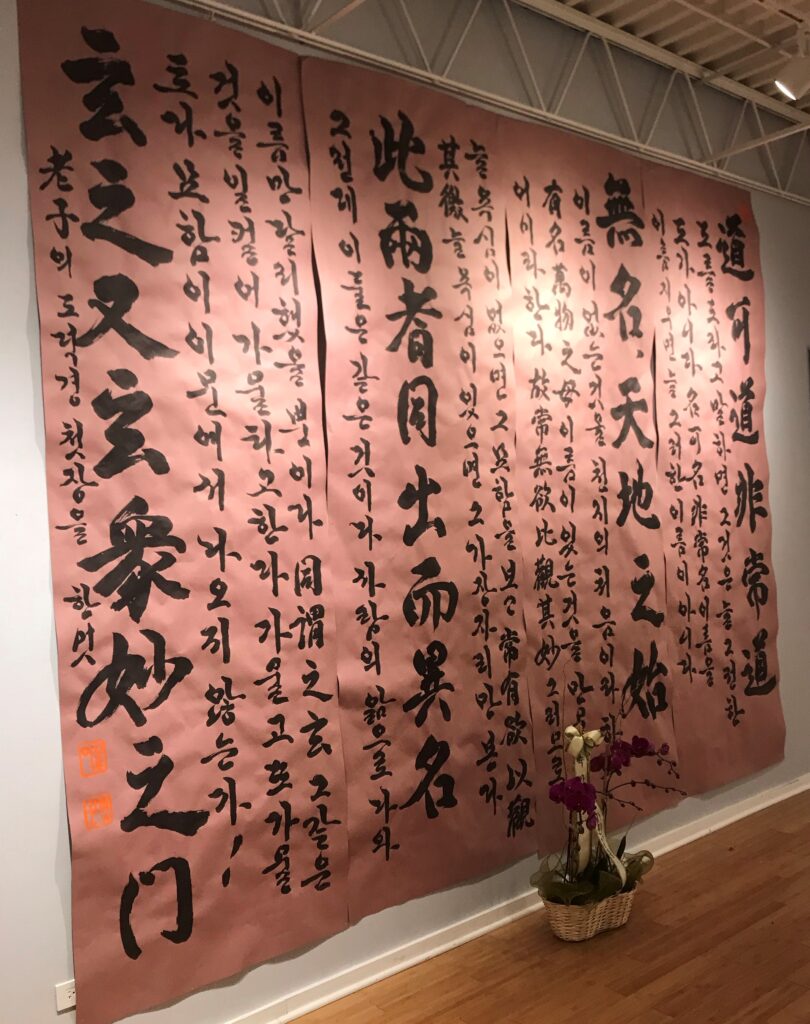 道可道非常道
도를 도라고 말하면 그것은 늘 그러한
도가 아니다. 名可名非常名 이름을
이름지으면 늘 그러한 이름이 아니다
無名、天地之始
이름이 없는것을 천지의 처음이라 하
有名萬物之母 이름이 있는것을 만물
어미라 한다. 故常無欲比觀其妙 그러므로
늘 욕심이 없으면 그 묘함을 보고 常有欲以觀
其徼 늘 욕심이 있으면 그 가장자리만 본다
此兩者同出而異名
그런데 이 둘은 같은 것이다 사람의 앎으로 나와
이름만 달리했을 뿐이다 同謂之玄 그같은
것을 일컬어 가물타고 한다 가물고 또 가물
토다 묘함이 이 문에서 나오지 않는가!
玄之又玄衆妙之门
老子의 도덕경 첫장을 한멋